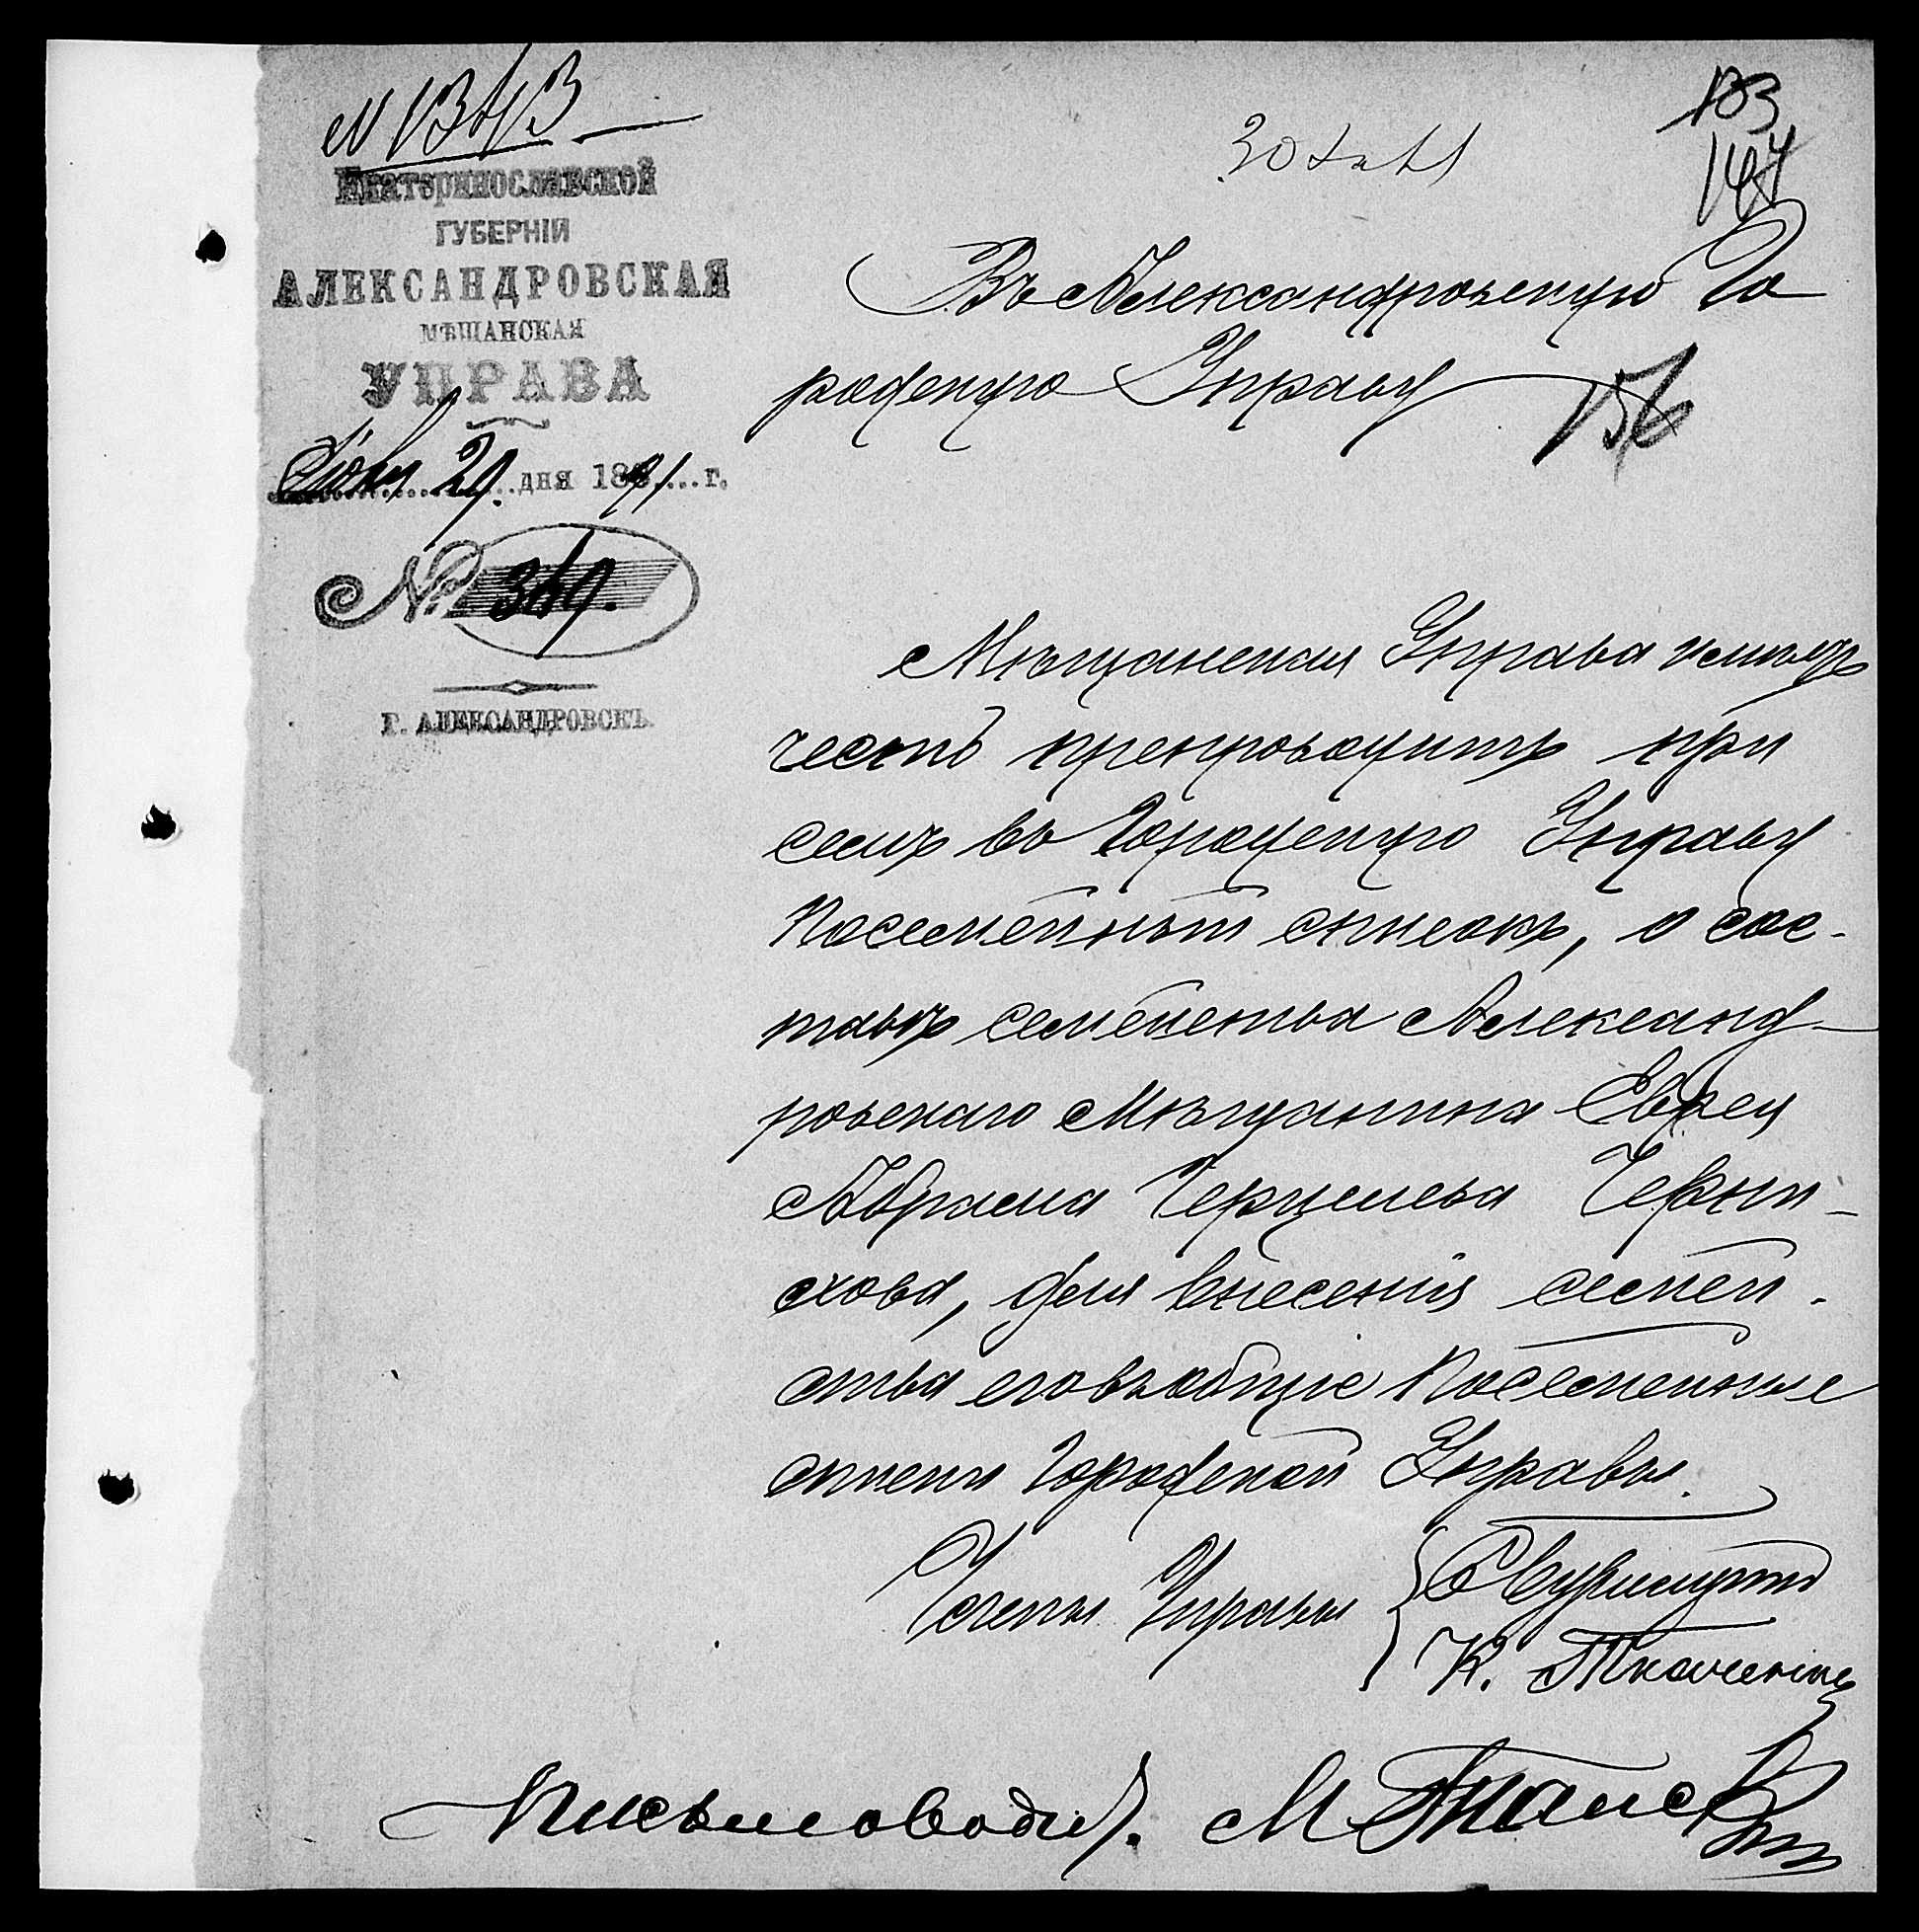 N 1343
103
Екатеринославской
ГУБЕРНІИ
АЛЕКСАНДРОВСКАЯ
МѢЩАНСКАЯ
УПРАВА
29 дня 1891 г.
№ 369.
Г. АЛЕКСАНДРОВСКЪ.
Въ Александровскую Го
родскую Управу
156
Мѣщанская Управа имѣетъ
честь препроводить при
семъ въ Городскую Управу
Посемейный списокъ, о сос-
тавѣ семейства Александ-
ровскаго Мѣщанина Еврея
Абрама Герцелева Черни-
хова, для внесенія семей-
ства его въ общіе Посемейные
списки Городской Управы.
Члены Управы
К. Ткаченко
Письмоводит. М